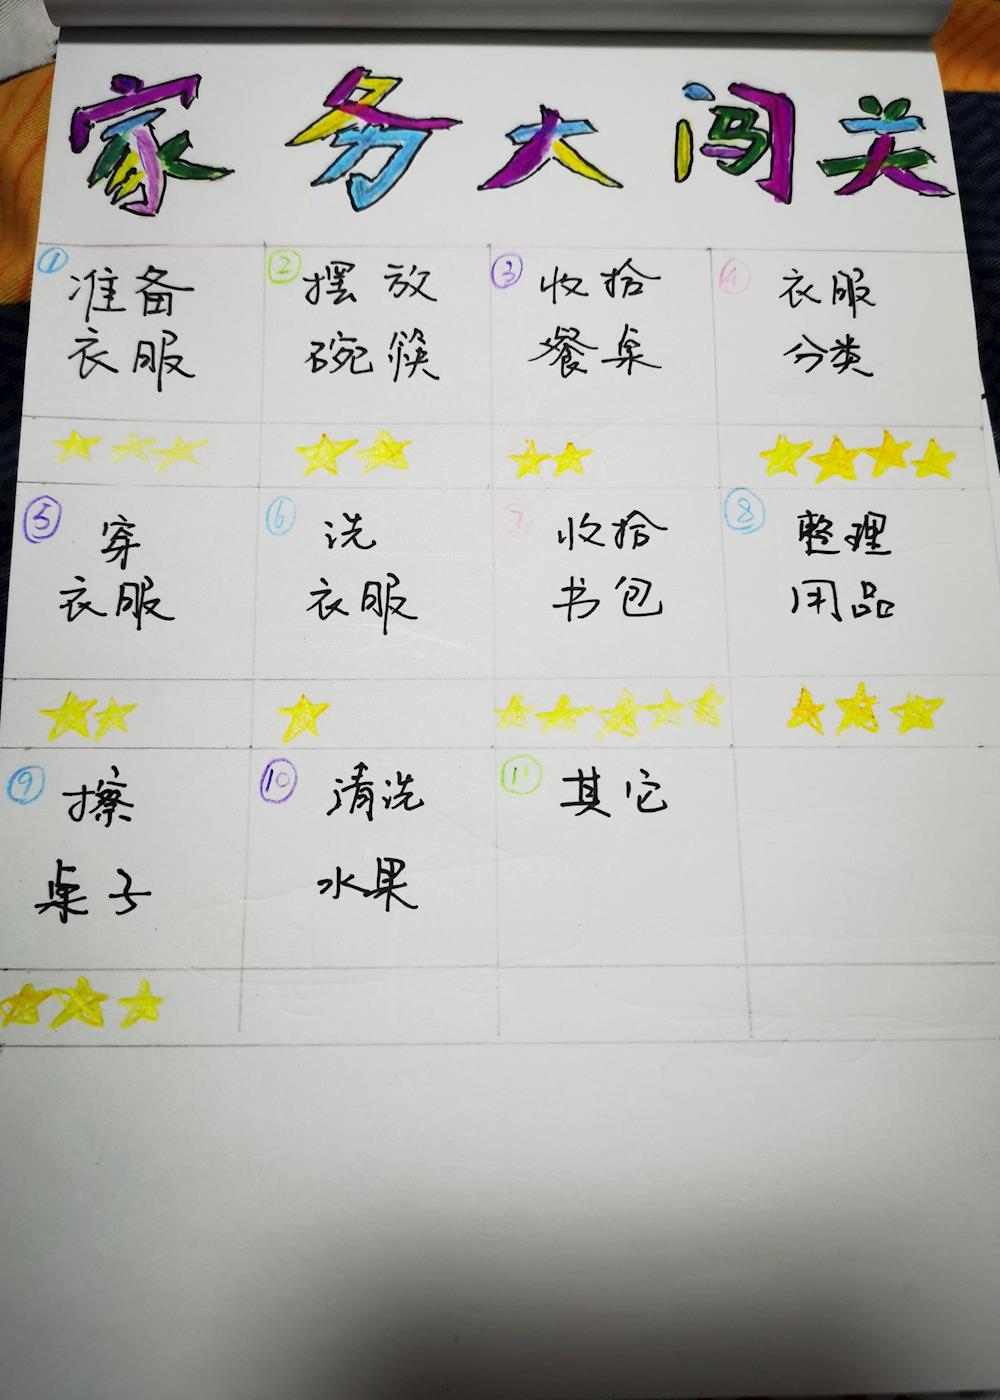 家务大闯关
① 准备
衣服
② 摆放
碗筷
③ 收拾
餐桌
④ 衣服
分类
⑤ 穿
衣服
⑥ 洗
衣服
⑦ 收拾
书包
⑧ 整理
用品
⑨ 擦
桌子
⑩ 清洗
水果
⑪ 其它